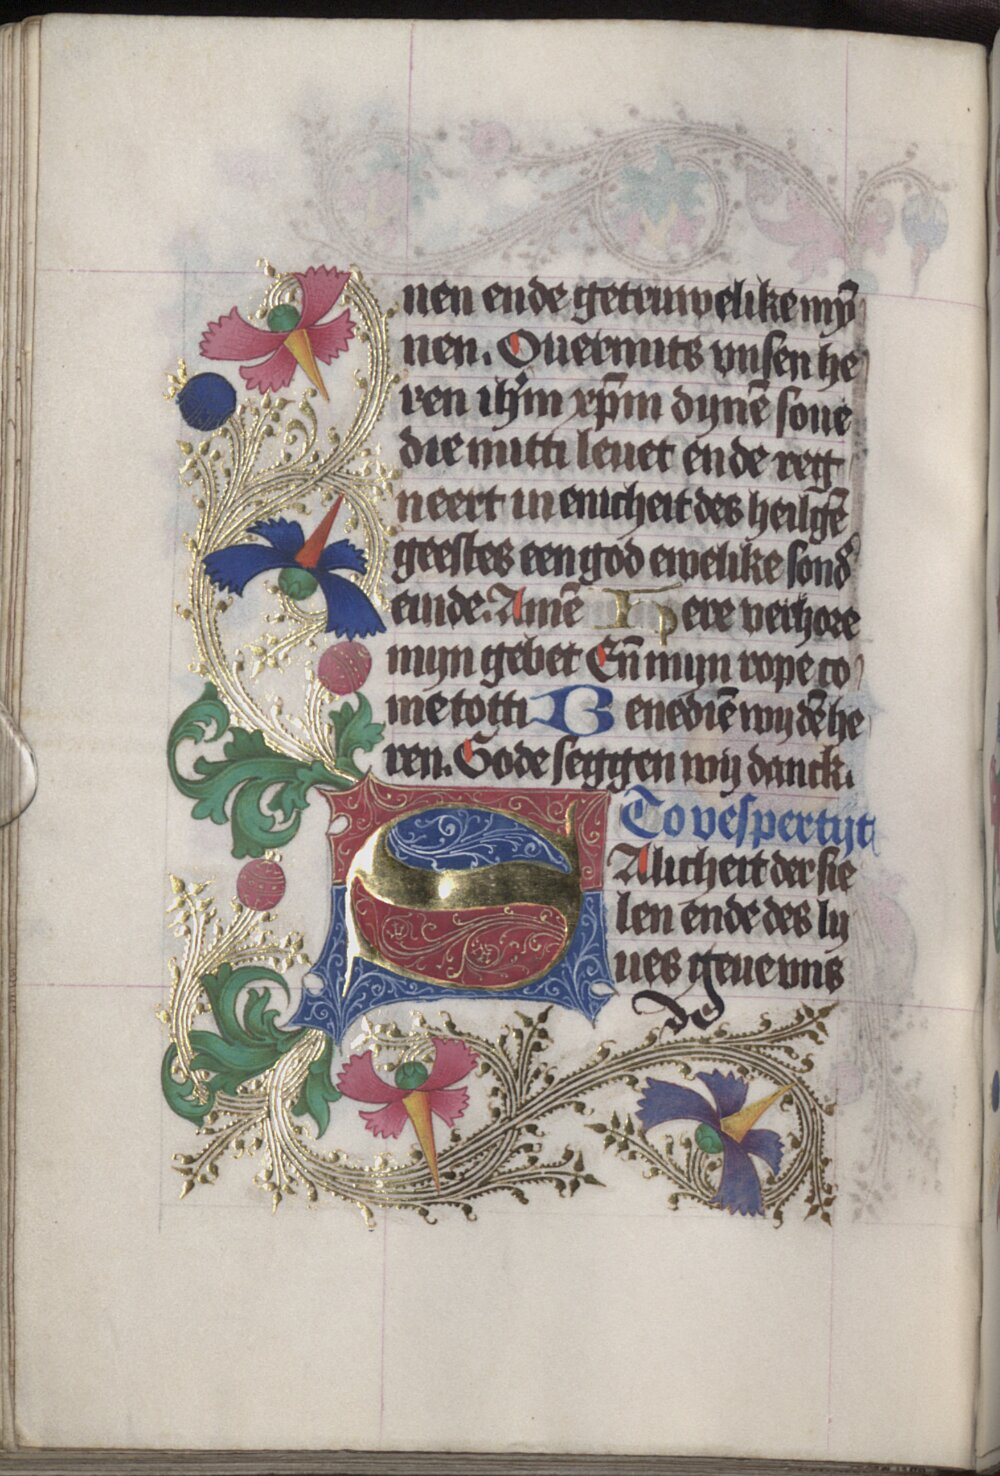 nen ende getruwelike mȳ
nen. Ouermits vnsen he
ren ih̄m xp̄m dynē sone
die mitti leuet ende reg
neert in enicheit des heilgē
geestes een god ewelike sond̄
einde. Amē Here verhore
myn gebet En̄ myn rope co
me totti Benediē wy dē he
ren. Gode seggen wy danck.
To vespertijt
SAlicheit der sie
len ende des ly
ues geue vns
de